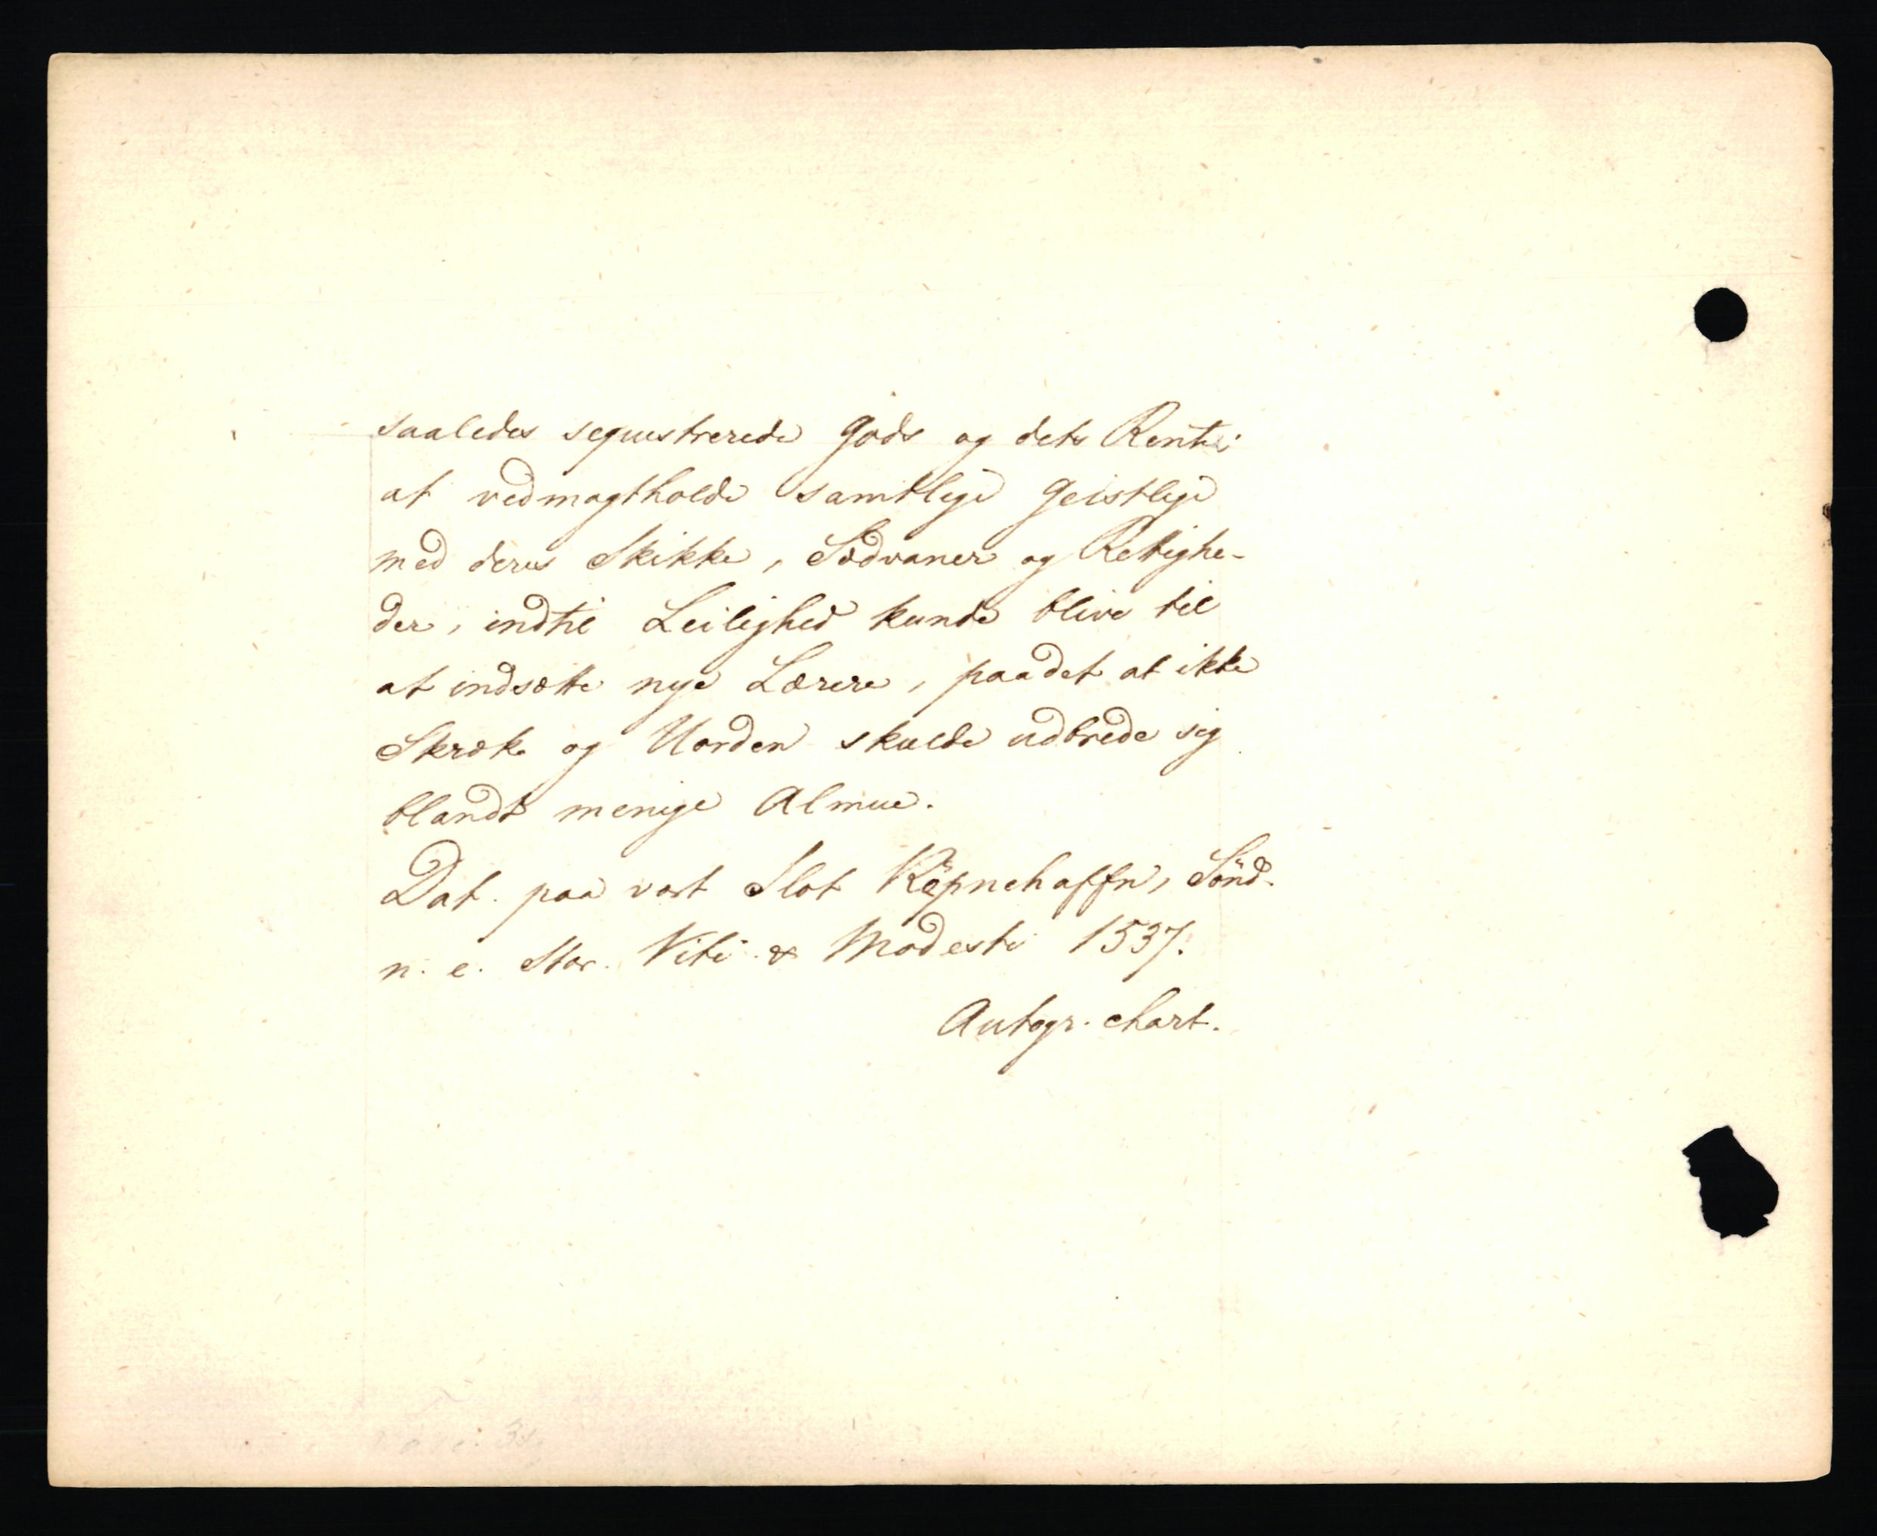 saaledes sequestrerede Gods og dets Rente:
at vedmagtholde samtlige Geistlige
med deres Skikke, Sædvaner og Rettighe-
der, indtil Leilighed kunde blive til
at indsætte nye Lærere, paadet at ikke
Skræk og Uorden skulde udbrede sig
blandt menige Almue.
Dat. paa vort Slot Köpnehaffn, Sönd.
n. e. Stor. Viti & Modesti 1537.
Autogr. chart.